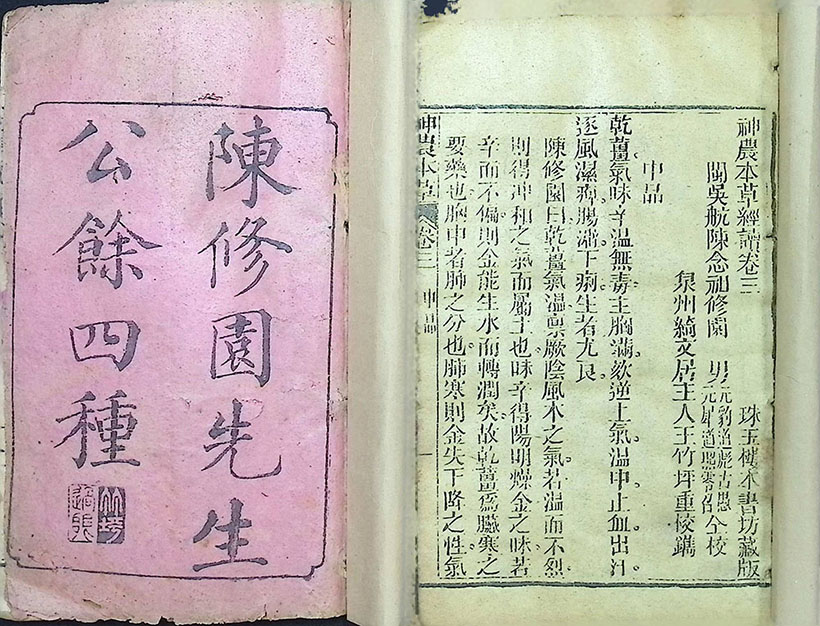 陳修園先生
公餘四種
神農本草經讀卷三　珠玉樓木書坊藏版
閩吳航陳念祖修園　男元豹道彪古愚元犀道照靈石仝校
泉州綺文居主人王竹坪重校鐫
中品
乾薑氣味辛溫無毒主胸滿欬逆上氣溫中止血出汗
逐風濕痺腸澼下痢生者尤良
陳修園曰乾薑氣溫稟厥陰風木之氣若溫而不烈
則得沖和之氣而屬土也味辛得陽明燥金之味若
辛而不偏則金能生水而轉潤矣故乾薑爲臟寒之
要藥也胸中者肺之分也肺寒則金失下降之性氣
神農本草　卷三　中品　一